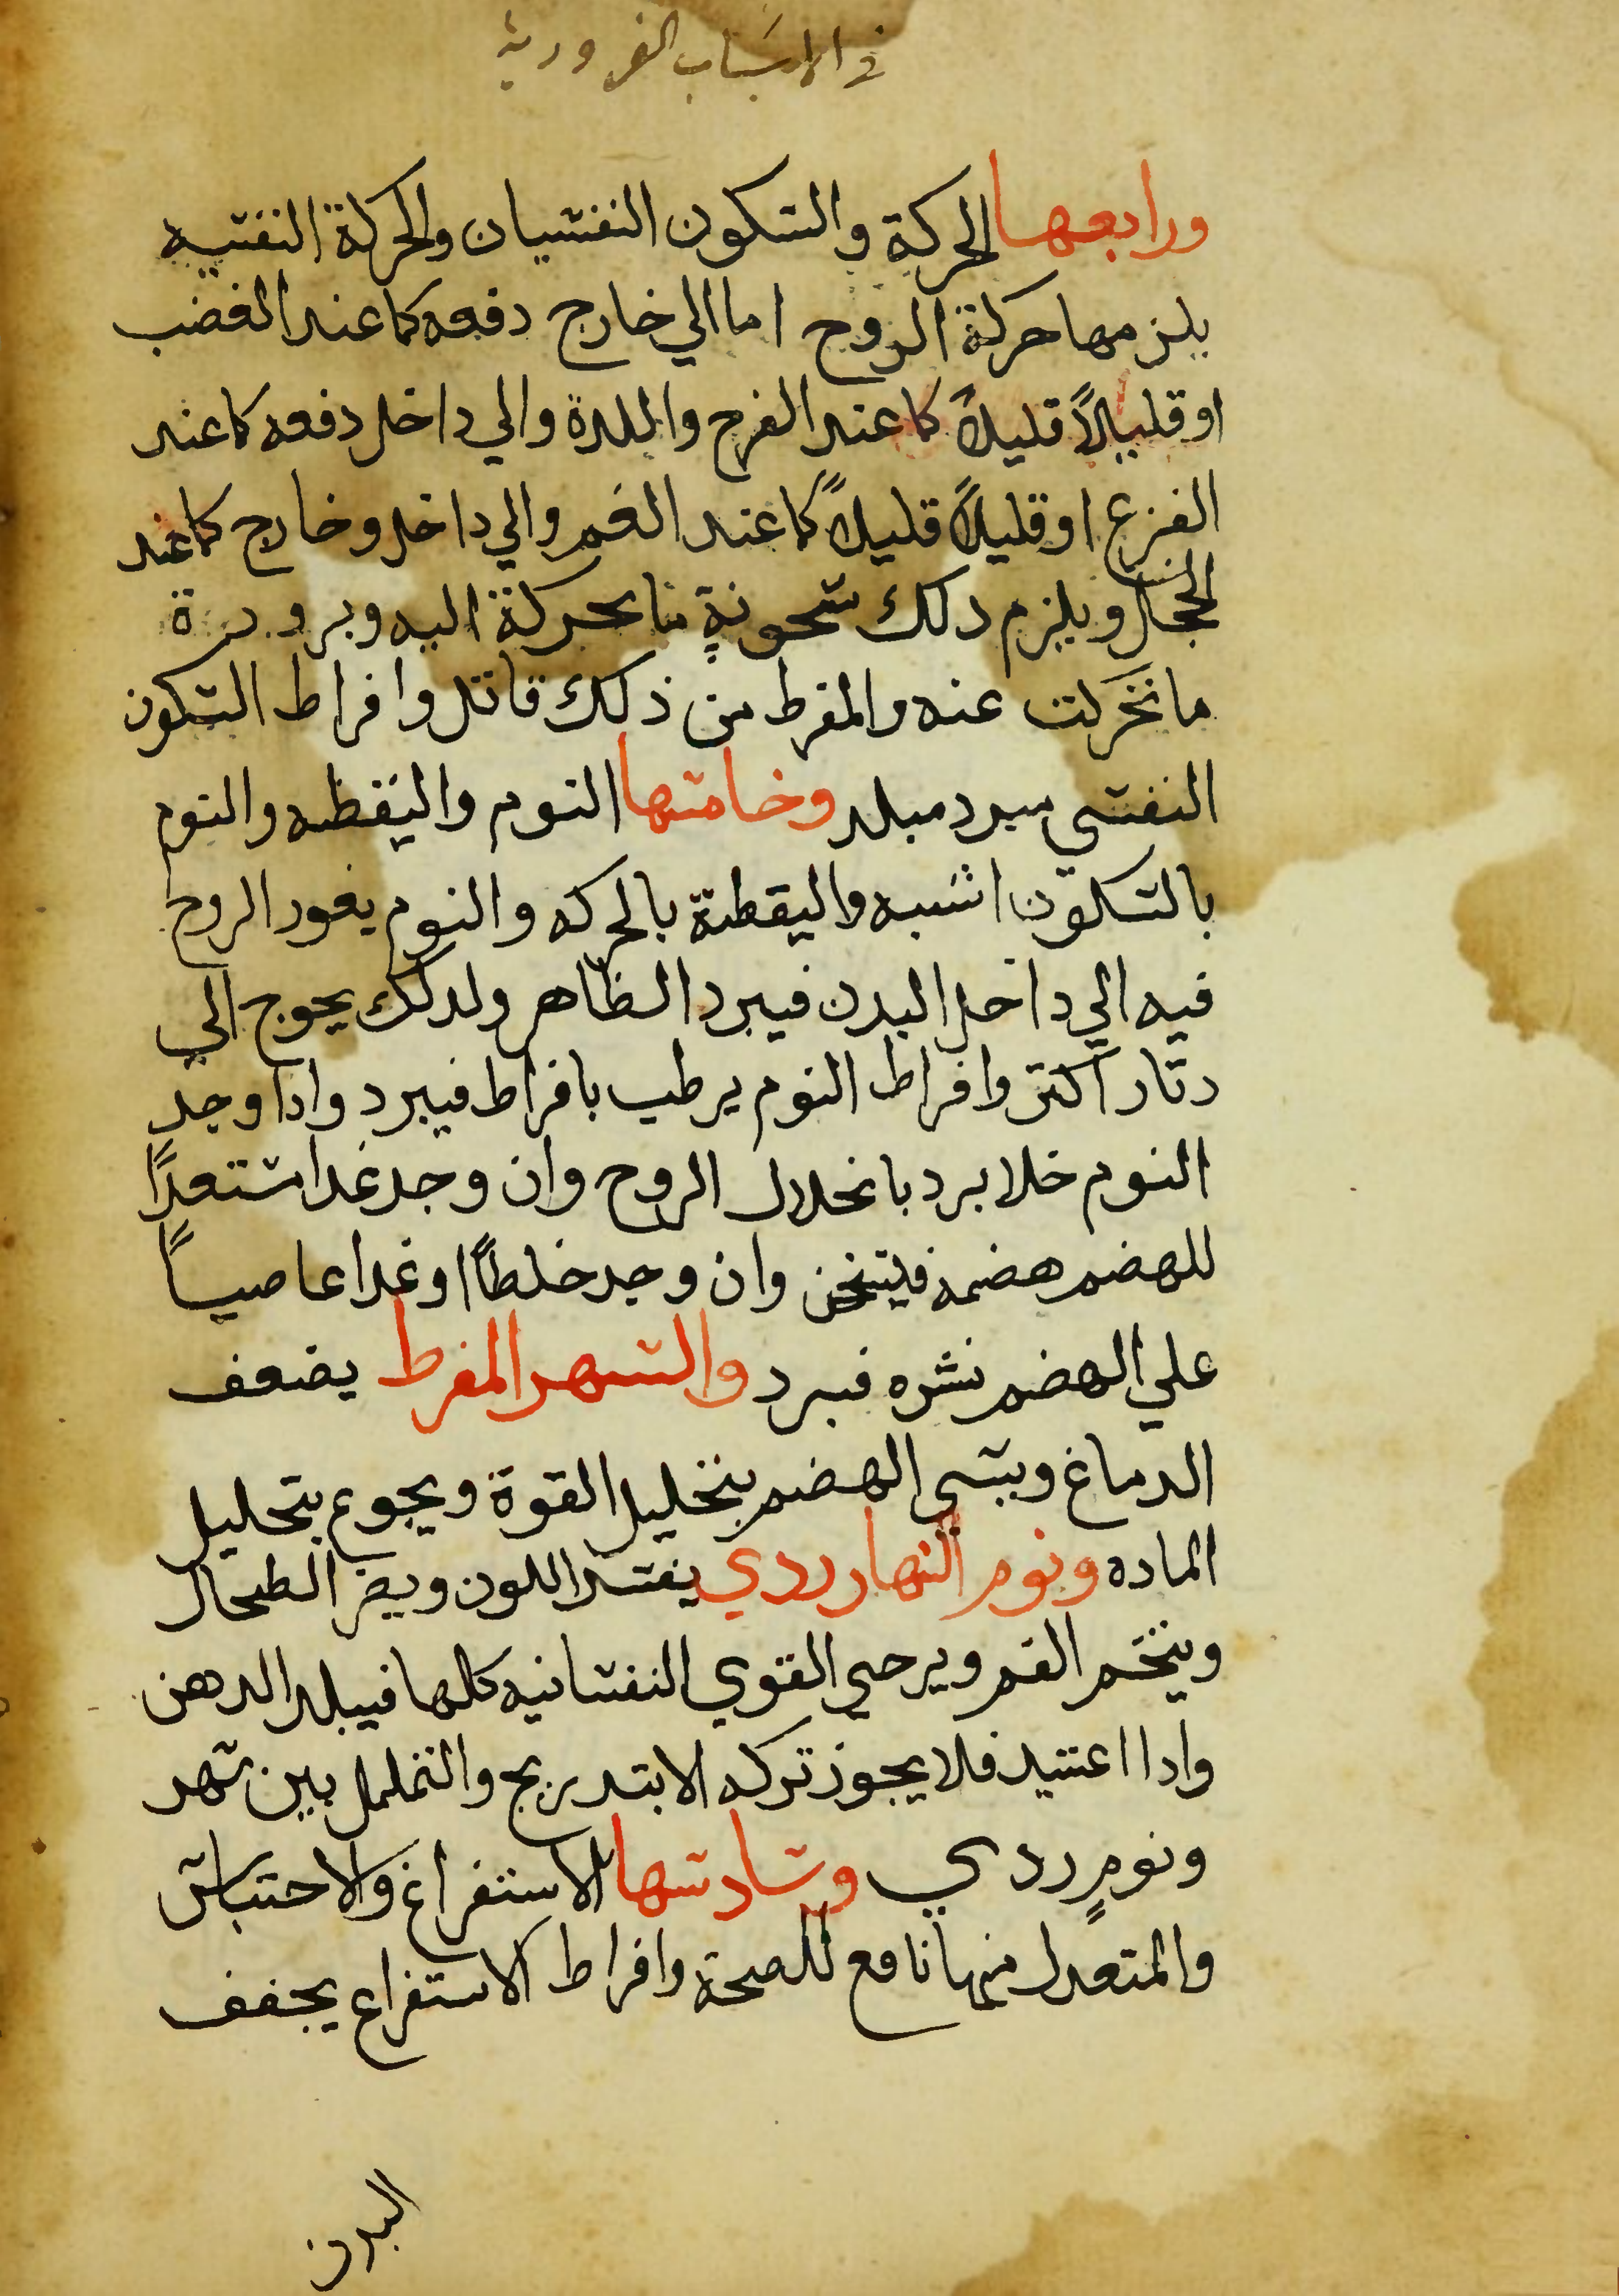 في الاسباب الضرورية
ورابعها الحركة والسكون النفسيان والحركة النفسيه
يلزمها حركة الروح اما الي خارج دفعه كما عند الغضب
او قليلاً قليلاً كما عند الفرح والمدة والي داخل دفعه كما عند
الفزع او قليلاً قليلاً كما عند الغم والي داخل وخارج كما عند
الخجل ويلزم دلك سخونةٍ ما تحركة اليه وبرودة
ما تحركت عنه والمفرط من ذلك قاتل وافراط السكون
النفسي مبرد مبلد وخامسها النوم واليقظه والنوم
بالسكون اشبه واليقظة بالحركه والنوم يغور الروح
فيه الي داخل البدن فيبرد الظاهر ولدلك يحوج الي
دثار اكثر وافراط النوم يرطب بافراط فيبرد وادا وجد
النوم خلا برد بانحلال الروح وان وجد غدا مستعداً
للهضم هضمه فيسخن وان وجد خلطاً او غدا عاصياً
علي الهضم نشره فبرد والسهر المفرط يضعف
الدماغ ويسي الهضم بتحليل القوة ويجوع بتحليل
الماده ونوم النهار ردي يفسد اللون ويضر الطحال
ويبخر الفم ويرخي القوي النفسانيه كلها فيبلد الدهن
وادا اعتيد فلا يجوز تركه الا بتدريج والتململ بين سهر
ونومٍ ردي وسادسها الاستفراغ والاحتباس
والمتعدل منها نافع للصحة وافراط الاستفراع يجفف
البدن